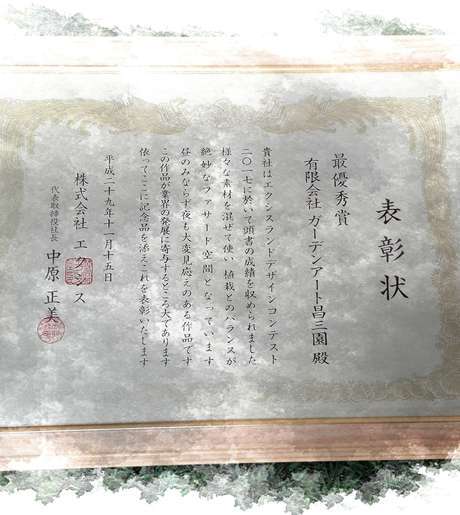 表彰状
最優秀賞
有限会社 ガーデンアート昌三園 殿
貴社はエクシスランドデザインコンテスト
二〇一七に於いて頭書の成績を収められました
様々な素材を混ぜて使い 植栽とのバランスが
絶妙なファサード空間となっています
昼のみならず夜も大変見応えのある作品です
この作品が業界の発展に寄与するところ大であります
依ってここに記念品を添えこれを表彰いたします
平成二十九年十一月十五日
株式会社 エクシス
代表取締役社長 中原 正美